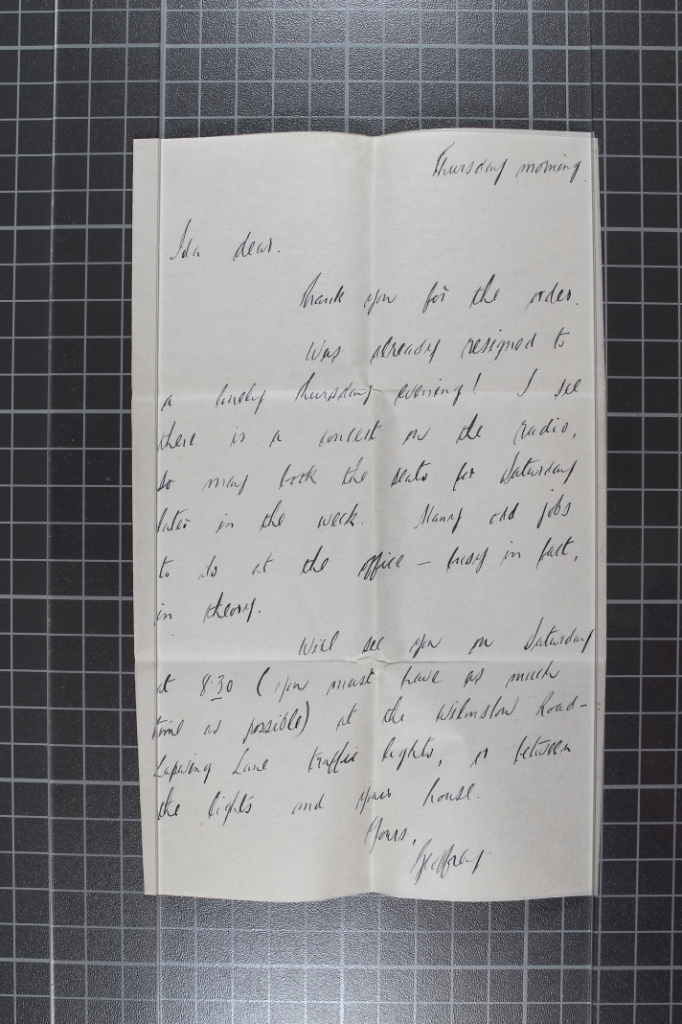 Thursday morning.
Ida dear.
Thank you for the order.
Was already resigned to
a lonely Thursday evening! I see
there is a concert on the radio,
so may book the seats for Saturday
later in the week. Many odd jobs
to do at the office – busy in fact,
in theory.
Will see you on Saturday
at 8.30 (you must have as much
time as possible) at the Wilmslow Road-
Lapwing Lane traffic lights, or between
the lights and your house.
Yours,
Geoffrey.